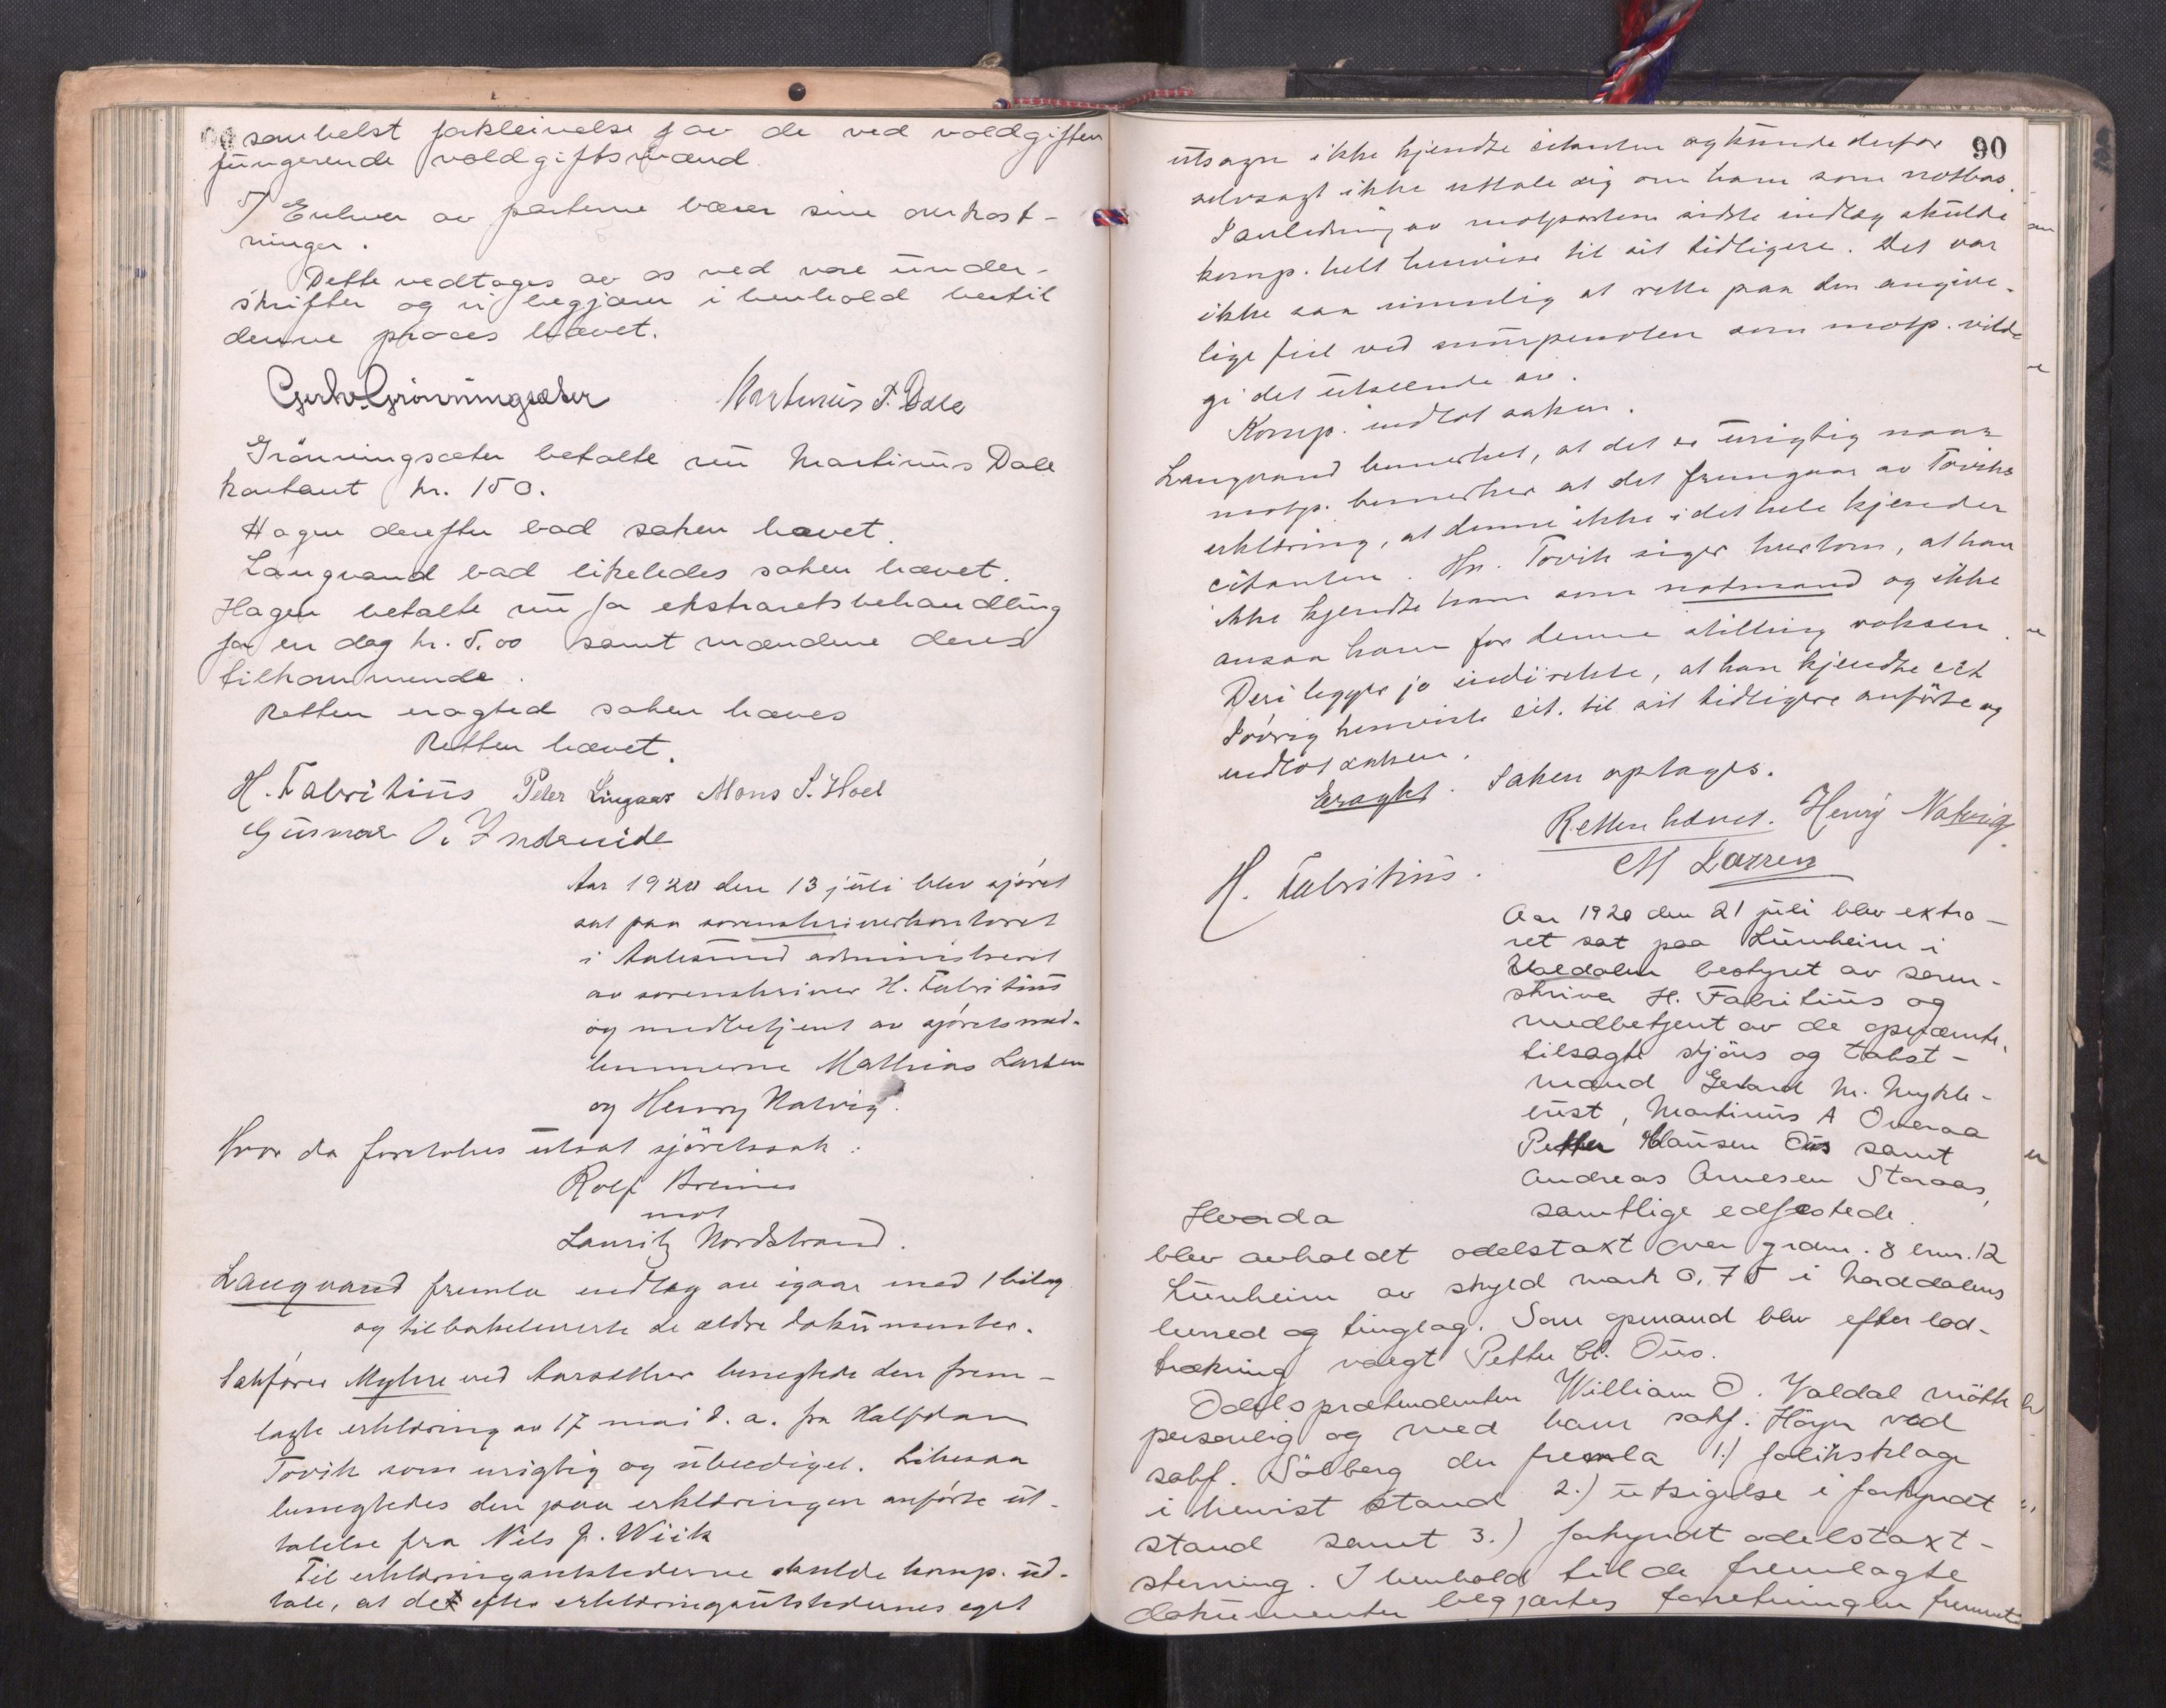 somhelst forkleinelse for de ved voldgiften
fungerende voldgiftsmænd
5) Enhver av parterne bærer sine omkost-
ninger.
Dette vedtages av os ved vore under-
skrifter og vi begjærer i henhold hertil
denne proces hævet.
Gerh. Grönningsæter Martinus T. Dale
Grönningsæter betalte nu Martinus Dale
kontant kr. 150.
Hagen derefter bad saken hævet.
Langvand bad likeledes saken hævet.
Hagen betalte nu for ekstraretsbehandling
for en dag kr. 5.00 samt mændene deres
tilkommende.
Retten eragted saken hæves
Retten hævet.
H. Fabritius Peter Lingaas Mons S. Hoel
Gunnar O. Indreeide
Aar 1920 den 13 juli blev sjöret
sat paa sorenskriverkontoret
i Aalesund administreret
av sorenskriver H. Fabritius
og medbetjent av sjöretsmed-
lemmerne Mathias Larsen
og Henry Natvig.
Hvor da foretokes utsat sjöretssak:
Rolf Breines
mot
Lauritz Nordstrand.
Langvand fremla indlæg av igaar med 1 bilag
og tilbakeleverte de ældre dokumenter.
Sakförer Myhre ved Aarsæther benegtede den frem-
lagte erklæring av 17 mai d. a. fra Halfdan
Tovik som urigtig og ubeediget. Likesaa
benegtedes den paa erklæringen anförte ut-
talelse fra Nils J. Wiik
Til erklæringsutstederne skulde komp. ut-
tale, at det efter erklæringsutstedernes eget
90
utsagn ikke kjendte citanten og kunde derfor
selvsagt ikke uttale sig om ham som notbas.
I anledning av motpartens sidste indlæg skulde
komp. helt henvise til sit tidligere. Det var
ikke saa rimelig at rette paa den angive-
lige feil ved snurpenoten som motp. vilde
gi det utseende av.
Komp. indlot saken.
Langvand bemerket, at det er urigtig naar
motp. bemerker at det fremgaar av Toviks
erklæring, at denne ikke i det hele kjender
citanten. Hr. Tovik siger hvertom, at han
ikke kjendte ham som notmand og ikke
ansaa ham for denne stilling voksen.
Deri legges jo indirekte, at han kjendte cit
Iövrig henviste cit. til sit tidligere anförte og
indlot saken.
Eragtet. Saken optages.
Retten hævet. Henry Natvig
H. Fabritius. M Larsen
Aar 1920 den 21 juli blev extra-
ret sat paa Lünheim i
Valdalen bestyret av soren-
skriver H. Fabritius og
medbetjent av de opnævnte,
tilsagte skjöns og takst-
mænd Gerhard M. Mykle-
bust, Martinus A Overaa
Petter Clausen Öus samt
Andreas Arnesen Staraas,
samtlige edfæstede.
Hvorda
blev avholdt odelstaxt over grdnr. 8 brnr. 12
Lünheim av skyld mark 0,75 i Norddalens
herred og tinglag. Som opmand blev efter lod-
trækning valgt Petter Cl. Öus.
Odelsprætendenten William O. Valdal mötte
personlig og med ham sakf. Höyn ved
sakf. Solberg der fremla 1.) forliksklage
i henvist stand 2.) utsigelse i forkyndt
stand samt 3.) forkyndt odelstaxt-
stevning. I henhold til de fremlagte
dokumenter begjærtes forretningen fremmet